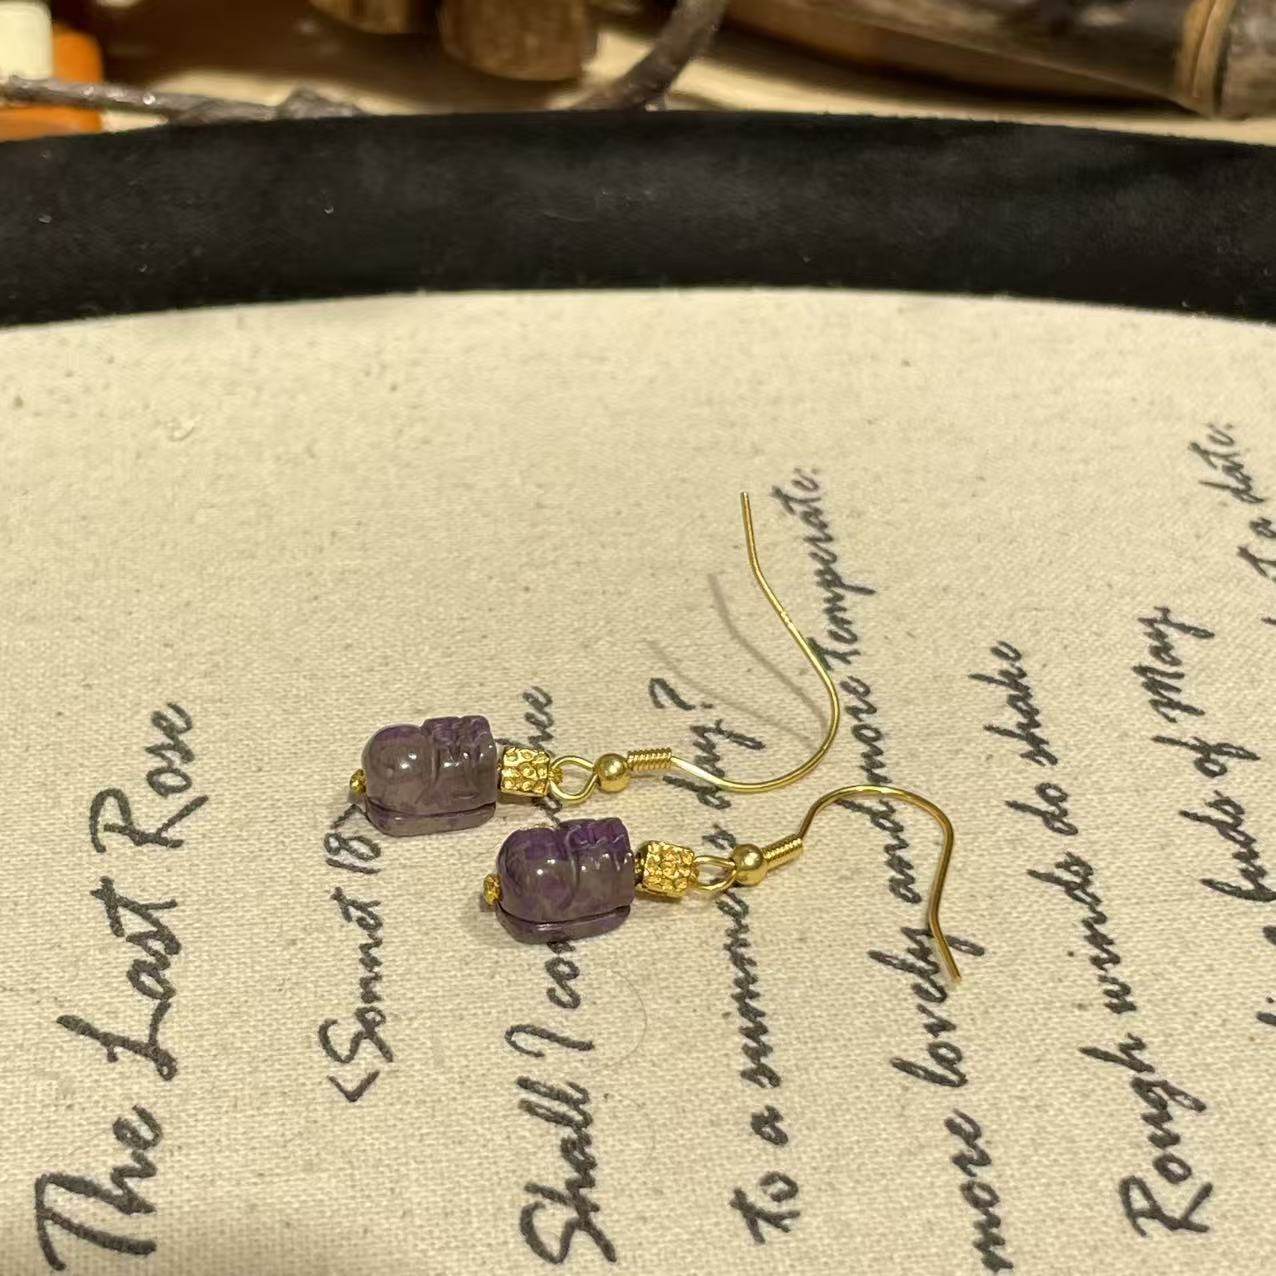 The Last Rose
<Sonnet 18>
Shall I thee
To a summe s day?
more lovely and more temperate:
Rough winds do shake
buds of May,
a date: